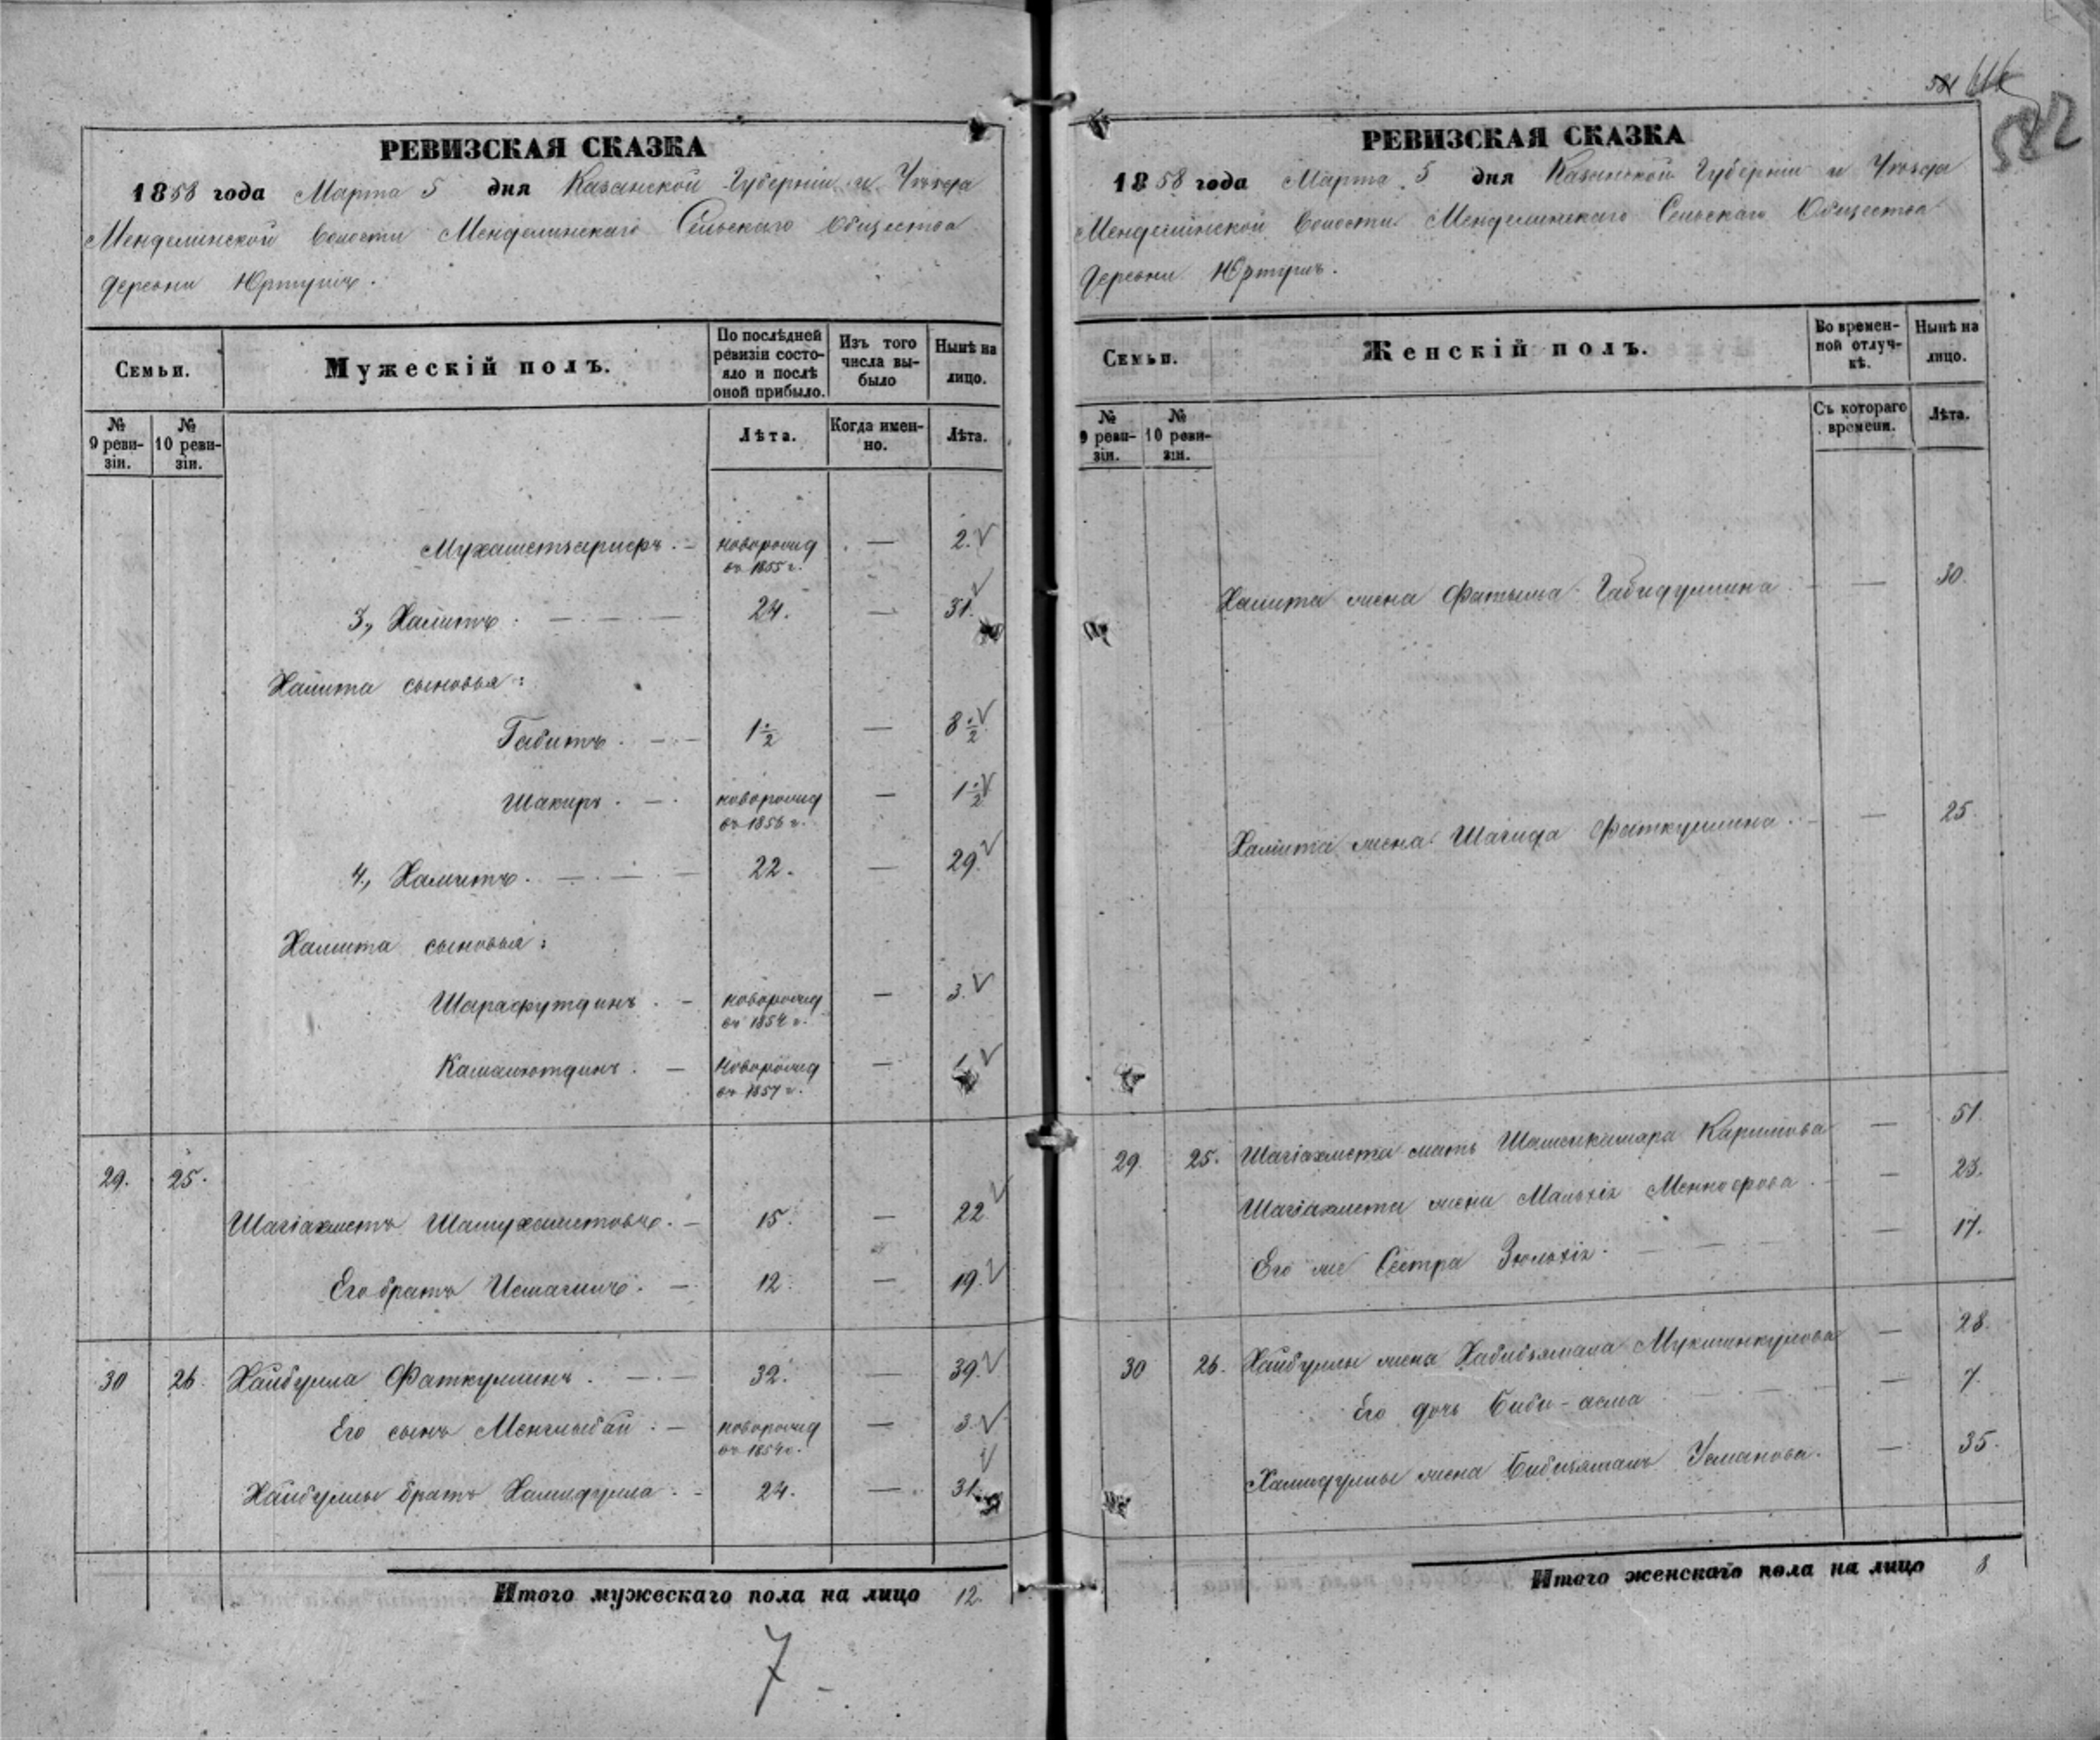 РЕВИЗСКАЯ СКАЗКА
1858 года Марта 5 дня Казанской Губернiи и Уѣзда
Менделинской Волости Менделинскаго Сельскаго Общества
деревни Юртушъ.
Семьи.
Мужескiй полъ.
По послѣдней ревизiи состояло и послѣ оной прибыло.
Изъ того числа выбыло
Нынѣ на лицо.
№ 9 ревизiи.
№ 10 ревизiи.
Лѣта.
Когда именно.
Лѣта.
Мухаметъариφъ. — новорожд въ 1855 г. — 2.
3., Халитъ. — 24. — 31.
Халита сыновья:
Габитъ. — 1½ — 8½
Шакиръ. — новорожд въ 1856 г. — 1½
4., Хамитъ. — 22. — 29.
Хамита сыновья:
Шарафутдинъ. — новорожд въ 1854 г. — 3.
Камалютдинъ. — новорожд въ 1857 г. — 1
29. 25.
Шагiахметъ Шамухаметовъ. — 15. — 22
Его братъ Исмагилъ. — 12. — 19.
30 26. Хайбулла Фаткуллинъ. — 32. — 39.
Его сынъ Менглыбай. — новорожд въ 1854 г. — 3.
Хайбуллы братъ Хамидулла. — 24. — 31.
Итого мужескаго пола на лицо 12.
7
582
РЕВИЗСКАЯ СКАЗКА
1858 года Марта 5 дня Казанской Губернiи и Уѣзда
Менделинской Волости Менделинскаго Сельскаго Общества
деревни Юртушъ.
Семьи.
Женскiй полъ.
Во временной отлучкѣ.
Нынѣ на лицо.
№ 9 ревизiи.
№ 10 ревизiи.
Съ котораго времени.
Лѣта.
Халита жена Фатыма Габидуллина — 30.
Хамита жена Шагида Фаткуллина. — 25.
29. 25. Шагiахмета мать Шамсикамара Каримова — 51.
Шагiахмета жена — 23.
Его же Сестра — 17.
30 26. Хайбуллы жена Хабибъямала — 28.
Его дочь Биби-асма — 7.
Хамидуллы жена Бибиямаль Усманова. — 35.
Итого женскаго пола на лицо 8